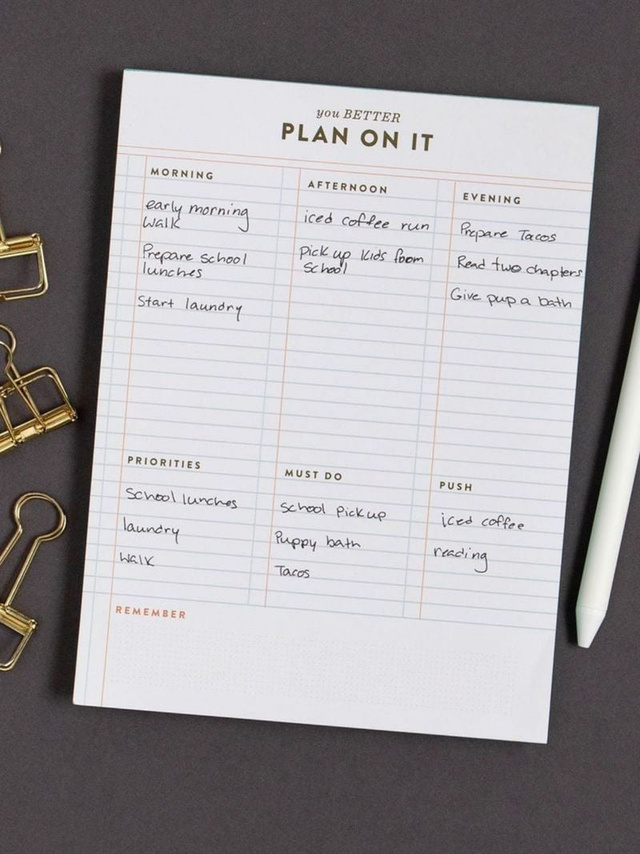 you BETTER
PLAN ON IT
MORNING
early morning
walk
Prepare school
lunches
Start laundry
AFTERNOON
iced coffee run
pick up kids from
school
EVENING
Prepare Tacos
Read two chapters
Give pup a bath
PRIORITIES
School lunches
laundry
walk
MUST DO
school pickup
Puppy bath
Tacos
PUSH
iced coffee
reading
REMEMBER